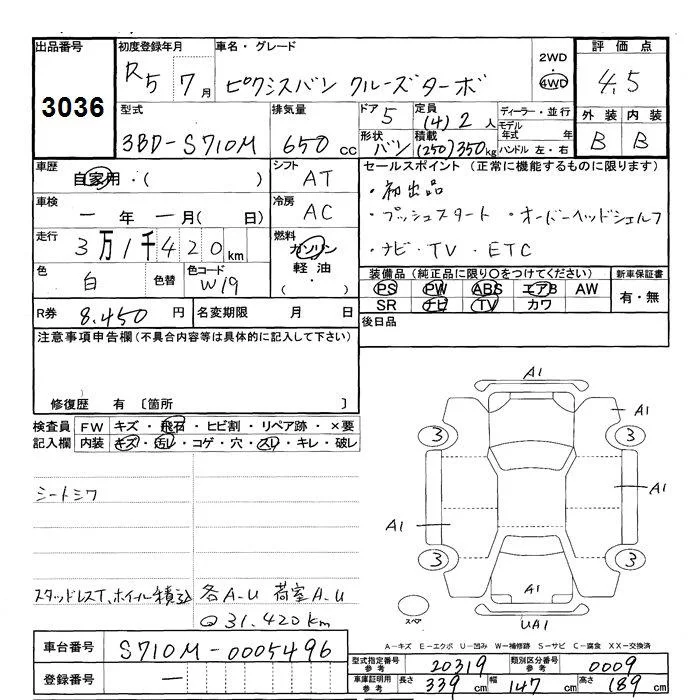 出品番号 初度登録年月 車名・グレード 2WD ・ 4WD 評価点
3036 R5 7月 ピクシスバン クルーズターボ 4.5
型式 排気量 ドア 定員 ディーラー・並行 外装 内装
3BD-S710M 650cc 5 (4) 2人 モデル年式 年 B B
形状 積載 ハンドル 左・右
バン (250)350kg
車歴 自家用・( ) シフト AT セールスポイント (正常に機能するものに限ります)
車検 一年一月( 日) 冷房 AC ・初出品
・プッシュスタート ・オーバーヘッドシェルフ
走行 3万1千420km 燃料 ガソリン ・ナビ・TV・ETC
軽油 ( ・ )
色 白 色替 色コード W19 装備品 (純正品に限り○をつけてください) 新車保証書
PS PW ABS エアB AW 有・無
SR ナビ TV カワ
R券 8,450円 名変期限 月 日 後日品
注意事項申告欄(不具合内容等は具体的に記入して下さい)
修復歴 有 〔箇所 〕
検査員 FW キズ・飛石・ヒビ割・リペア跡・×要
記入欄 内装 キズ・汚レ・コゲ・穴・スレ・キレ・破レ
シートシワ
スタッドレスT、ホイル積込 各A-U 荷室A-U
@31.420km
A1
A1
3 3
A1
A1
3 3
A1
スペア UA1
A-キズ E-エクボ U-凹み W-補修跡 S-サビ C-腐食 XX-交換済
車台番号 S710M-0005496
型式指定番号 参考 20319 類別区分番号 参考 0009
登録番号 一
車庫証明用 参考 長さ 339cm 幅 147cm 高さ 189cm